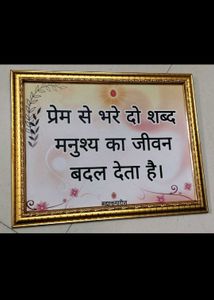 प्रेम से भरे दो शब्द
मनुश्य का जीवन
बदल देता है।